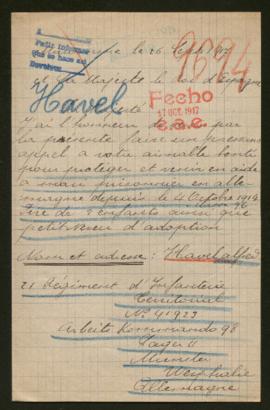 Petit informe
que se hace aut
le 26 Sept 1917
Sa Majesté le Roi d'Espagne
1694
Havel
Fecho
17 OCT. 1917
E.a.e.
J'ai l'honneur de par
la présente faire un pressant
appel à votre aimable bonté
pour protéger et venir en aide
à mari prisonnier en alle
magne depuis le 4 Octobre 1914
Père de 2 enfants ainsi que
petit neveu d'adoption
Nom et adresse : Havel Alfred
21 Régiment d'Infanterie
Territorial
N° 41923
Arbeits Kommando 98
Lager II
Munster
Westphalie
Allemagne